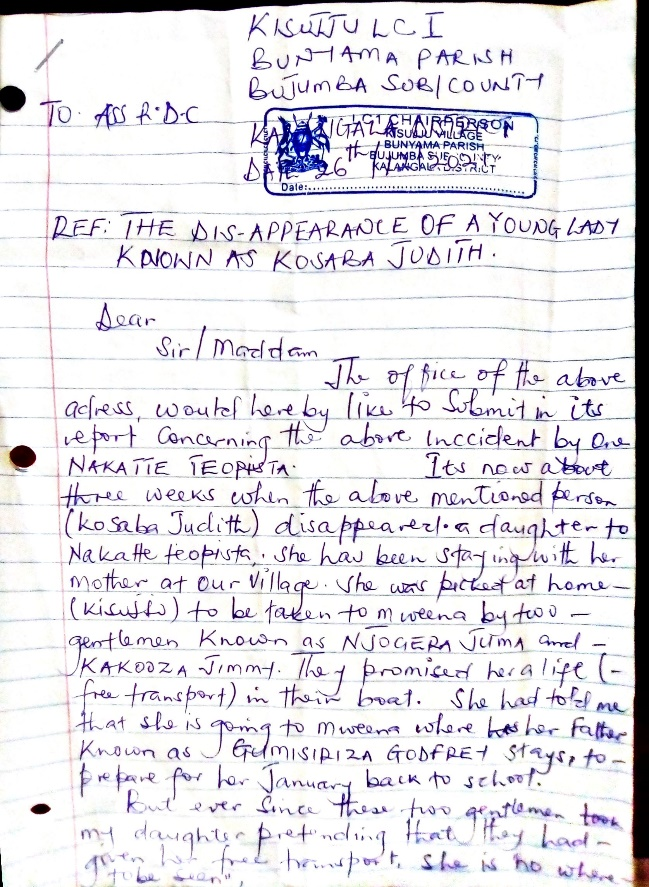 KISUJJU LC I
BUNYAMA PARISH
BUJUMBA SUB/COUNTY
TO: ASS R.D.C
LC1 CHAIRPERSON
KISUJJU VILLAGE
BUNYAMA PARISH
BUJUMBA SUB COUNTY
KALANGALA DISTRICT
Date:
26th
REF: THE DIS-APPEARANCE OF A YOUNG LADY
KNOWN AS KOSABA JUDITH.
Dear
Sir/Maddam
The office of the above
adress, would hereby like to submit in its
report concerning the above inccident by one
NAKATTE TEOPISTA. Its now about
three weeks when the above mentioned person
(Kosaba Judith) disappeared. a daughter to
Nakatte teopista. She has been staying with her
mother at our village. She was picked at home-
(Kisujju) to be taken to mweena by two -
gentlemen Known as NJOGERA JUMA and -
KAKOOZA JIMMY. They promised her a lift (-
free transport) in their boat. She had told me
that she is going to mweena where her Father
Known as GUMISIRIZA GODFREY stays, to -
prepare for her January back to school.
But ever since these two gentlemen took
my daughter pretending that they had -
given her free transport. She is no where -
to be seen",